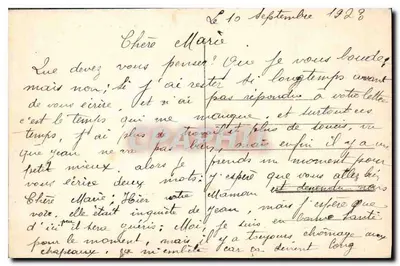 Le 10 Septembre 1923
Chère Marie
Que devez vous penser! Que je vous boude,
mais non; si j'ai rester si longtemps avant
de vous écrire, et n'ai pas répondu à votre lettre
c'est le temps qui me manque, et surtout ces
temps, j'ai plus de travail et plus de soucis, vu
que jean ne va pas bien, mais enfin il y a un
petit mieux, alors je prends un moment pour
vous écrire deux mots; j'espère que vous allez bi
Chère Marie; Hier votre Maman est
voir, elle était inquiète de Jean, mais j'espère que
d'ici il sera guéris; Moi, je suis en bonne santé
pour le moment, mais il y a toujours chômage aux
chapeaux, ça m'embête car ça devient long